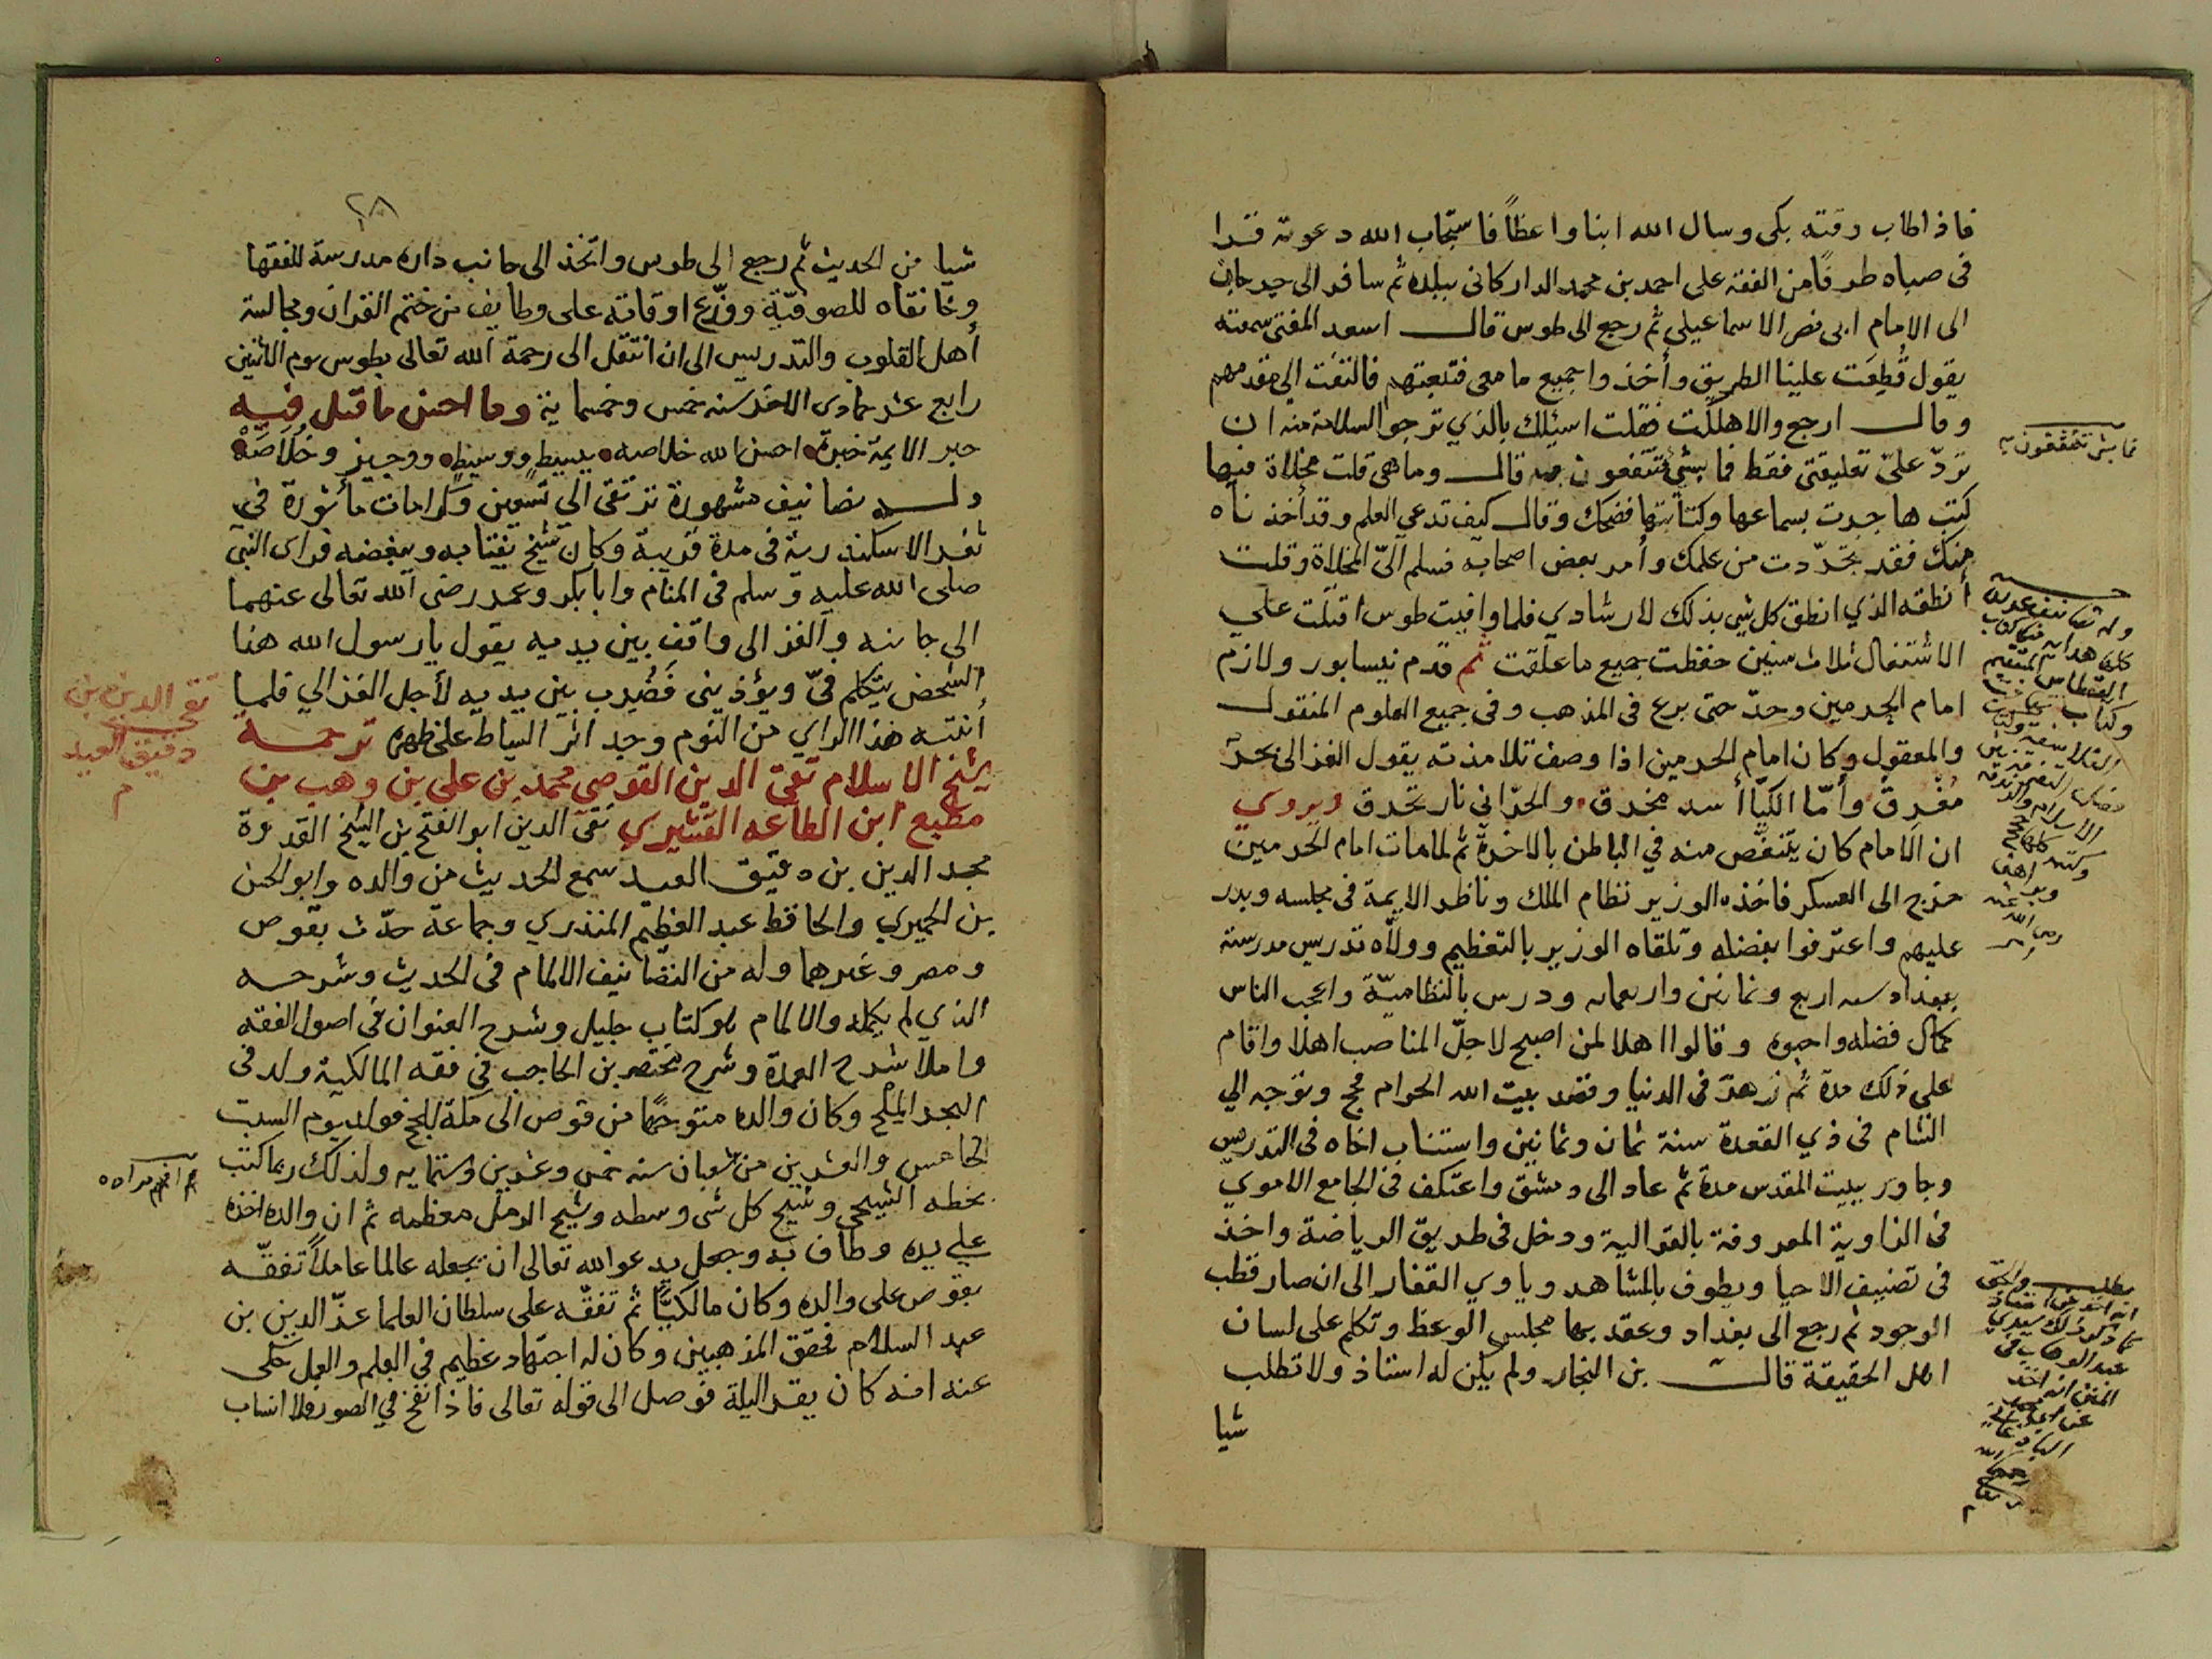 فاذا طاب وقته بكى وسال الله ابنا واعظاً فاستجاب الله دعوته فقرا
فى صباه طرفًا من الفقه على احمد بن محمد الداركانى ببلده ثم سافر الى جرجان
الى الامام ابى نصر الاسماعيلى ثم رجع الى طوس قال اسعد المفتى سمعته
يقول قُطِعَت علينا الطريق وأخذوا جميع ما معى فتبعتهم فالتفت الى مقدمهم
وقال ارجع والا هلكت فقلت اسئلك بالذي ترجوا السلامة منه ان
تردّ علىّ تعليقتى فقط فما بشئ تنتفعون به قال وما هى قلت مخلاة فيها
كتب هاجرت بسماعها وكتابتها فضحك وقال كيف تدعي العلم وقد أخذناه
منك فقد تجرّدت من علمك وأمر بعض اصحابه فسلم الىّ المخلاة وقلت
أنطقه الذي انطق كل شي بذلك لارشادي فلما وافيت طوس اقبلت علي
الاشتغال ثلاث سنين حفظت جميع ما علقت ثم قدم نيسابور ولازم
امام الحرمين وجدّ حتى برع فى المذهب وفى جميع العلوم المنقول
والمعقول وكان امام الحرمين اذا وصف تلامذته يقول الغزالى بحرٌ
مُغْرِقٌ وأمّا الكيّا أسد مخدق والحرّانى نار تحرق ويروي
ان الامام كان يتنغّص منه في الباطن بالاخرة ثم لما مات امام الحرمين
خرج الى العسكر فاخذه الوزير نظام الملك وناظر الايمة فى مجلسه وبدر
عليهم واعترفوا بفضله وتلقاه الوزير بالتعظيم وولّاه تدريس مدرسته
ببغداد سنه اربع وثمانين واربعمايه ودرس بالنظاميّة واعجب الناس
كمال فضله واحبوه وقالوا اهلا لمن اصبح لاجلّ المناصب اهلا واقام
على ذلك مدة ثم زهدّ فى الدنيا وقصد بيت الله الحرام فحج وتوجه الي
الشام فى ذي القعدة سنة ثمان وثمانين واستناب اخاه فى التدريس
وجاور ببيت المقدس مدة ثم عاد الى دمشق واعتكف فى الجامع الاموي
فى الزاوية المعروفة بالغزالية ودخل فى طريق الرياضة واخذ
فى تصنيف الاحيا ويطوف بالمشاهد وياوي القفار الى ان صار قطب
الوجود ثم رجع الى بغداد وعقد بها مجلس الوعظ وتكلم على لسان
اهل الحقيقة قال بن النجار ولم يكن له استاذ ولا تطلب
شيا
وله
كتاب
وكتاب
الاسلام
رضى الله
عنه
مطلب
كما ذكر ذلك سيدي
عبد الوهاب فى
المنن انه اخذ
عن
٢٨
شيا من الحديث ثم رجع الى طوس واتخذ الى جانب داره مدرسة للفقها
وخانقاه للصوفيّة ووزّع اوقاته على وظايف من ختم القران ومجالسة
أهل القلوب والتدريس الى ان انتقل الى رحمة الله تعالى بطوس يوم الاثنين
رابع عشر جمادى الاخر سنه خمس وخمسماية وما احسن ما قيل فيه
حبر الايمة حبرة احسن الله خلاصه ببسيطٍ ووسيطٍ ووجيز وخُلاَصَهْ
وله تصانيف مشهورة ترتقى الى تسعين وكرامات مأثورة في
ثغر الاسكندرية فى مدة قريبة وكان شيخ يغتابه ويبغضه فراى النبى
صلى الله عليه وسلم فى المنام وابا بكر وعمر رضى الله تعالى عنهما
الى جانبه والغزالى واقف بين يديه يقول يا رسول الله هذا
الشخص يتكلم فىّ ويؤذينى فَضُرب بين يديه لأجل الغزالي فلما
أنتبه هذا الراي من النوم وجد اثر السياط على ظهره ترجمة
شيخ الاسلام تقى الدين القوصى محمد بن على بن وهب بن
مطيع ابن الطاعه القشيري تقى الدين ابو الفتح بن الشيخ القدوة
مجد الدين بن دقيق العيد سمع الحديث من والده وابو الحسن
بن الجميزي والحافظ عبد العظيم المنذري وجماعة حدّث بقوص
ومصر وغيرهما وله من التصانيف الالمام فى الحديث وشرحه
الذي لم يكمله والالمام هو كتاب جليل وشرح العنوان فى اصول الفقه
واملا شرح العمدة وشرح مختصر بن الحاجب فى فقه المالكية ولد فى
البحر الملح وكان والده متوجهًا من قوص الى مكة للحج فولد يوم السبت
الخامس والعشرين من شعبان سنه خمس وعشرين وستمايه ولذلك ربما كتب
بخطه الثبجي وثبج كل شى وسطه وثبج الرمل معظمه ثم ان والده اخذه
علي يده وطاف به وجعل يدعو الله تعالى ان يجعله عالما عاملاً تفقّه
بقوص على والده وكان مالكيًّا ثم تفقّه على سلطان العلما عزّ الدين بن
عبد السلام فحقق المذهبين وكان له اجتهاد عظيم فى العلم والعمل حكى
عنه انه كان يقرا ليلة فوصل الى قوله تعالى فاذا نفخ في الصور فلا انساب
تقى الدين بن
دقيق العيد
م